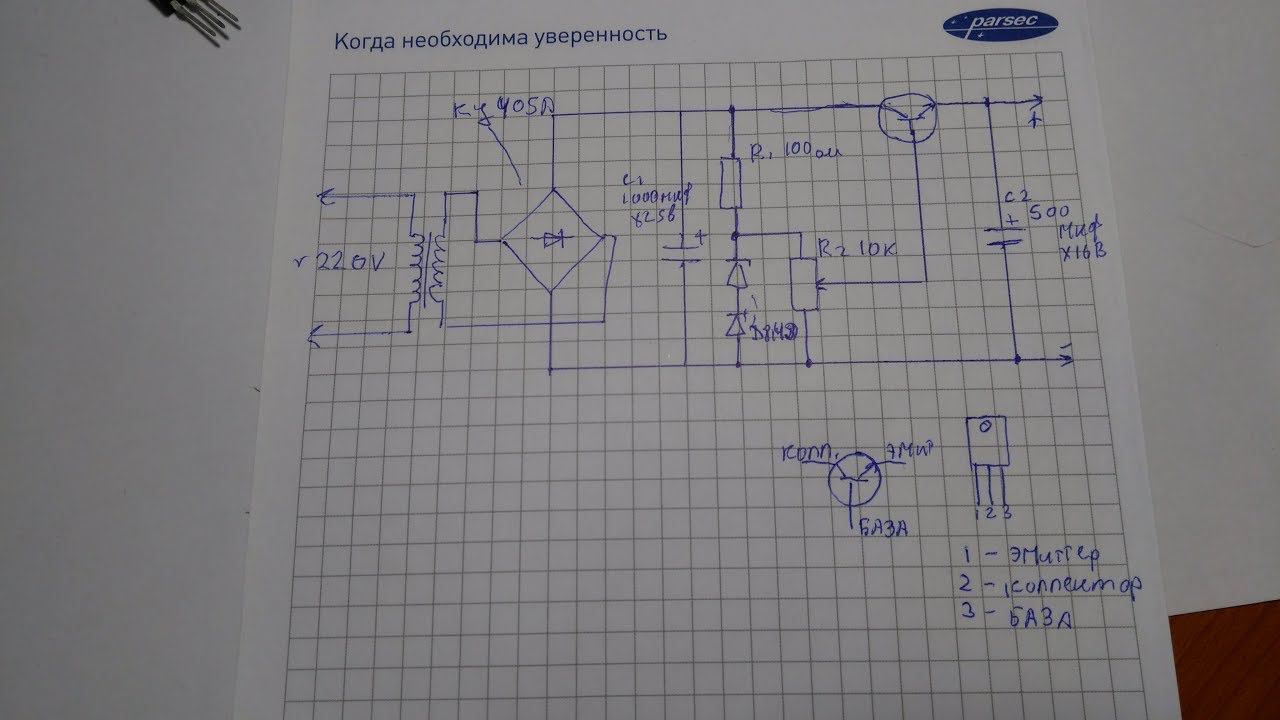 Когда необходима уверенность
parsec
КЦ405А
R1 100 ом
C1
1000мкф
х25в
+
+
~ 220V
R2 10К
C2
+
500
мкф
х16В
-
КОЛЛ.
ЭМИТ
БАЗА
1 2 3
1 - ЭМИТТЕР
2 - КОЛЛЕКТОР
3 - БАЗА